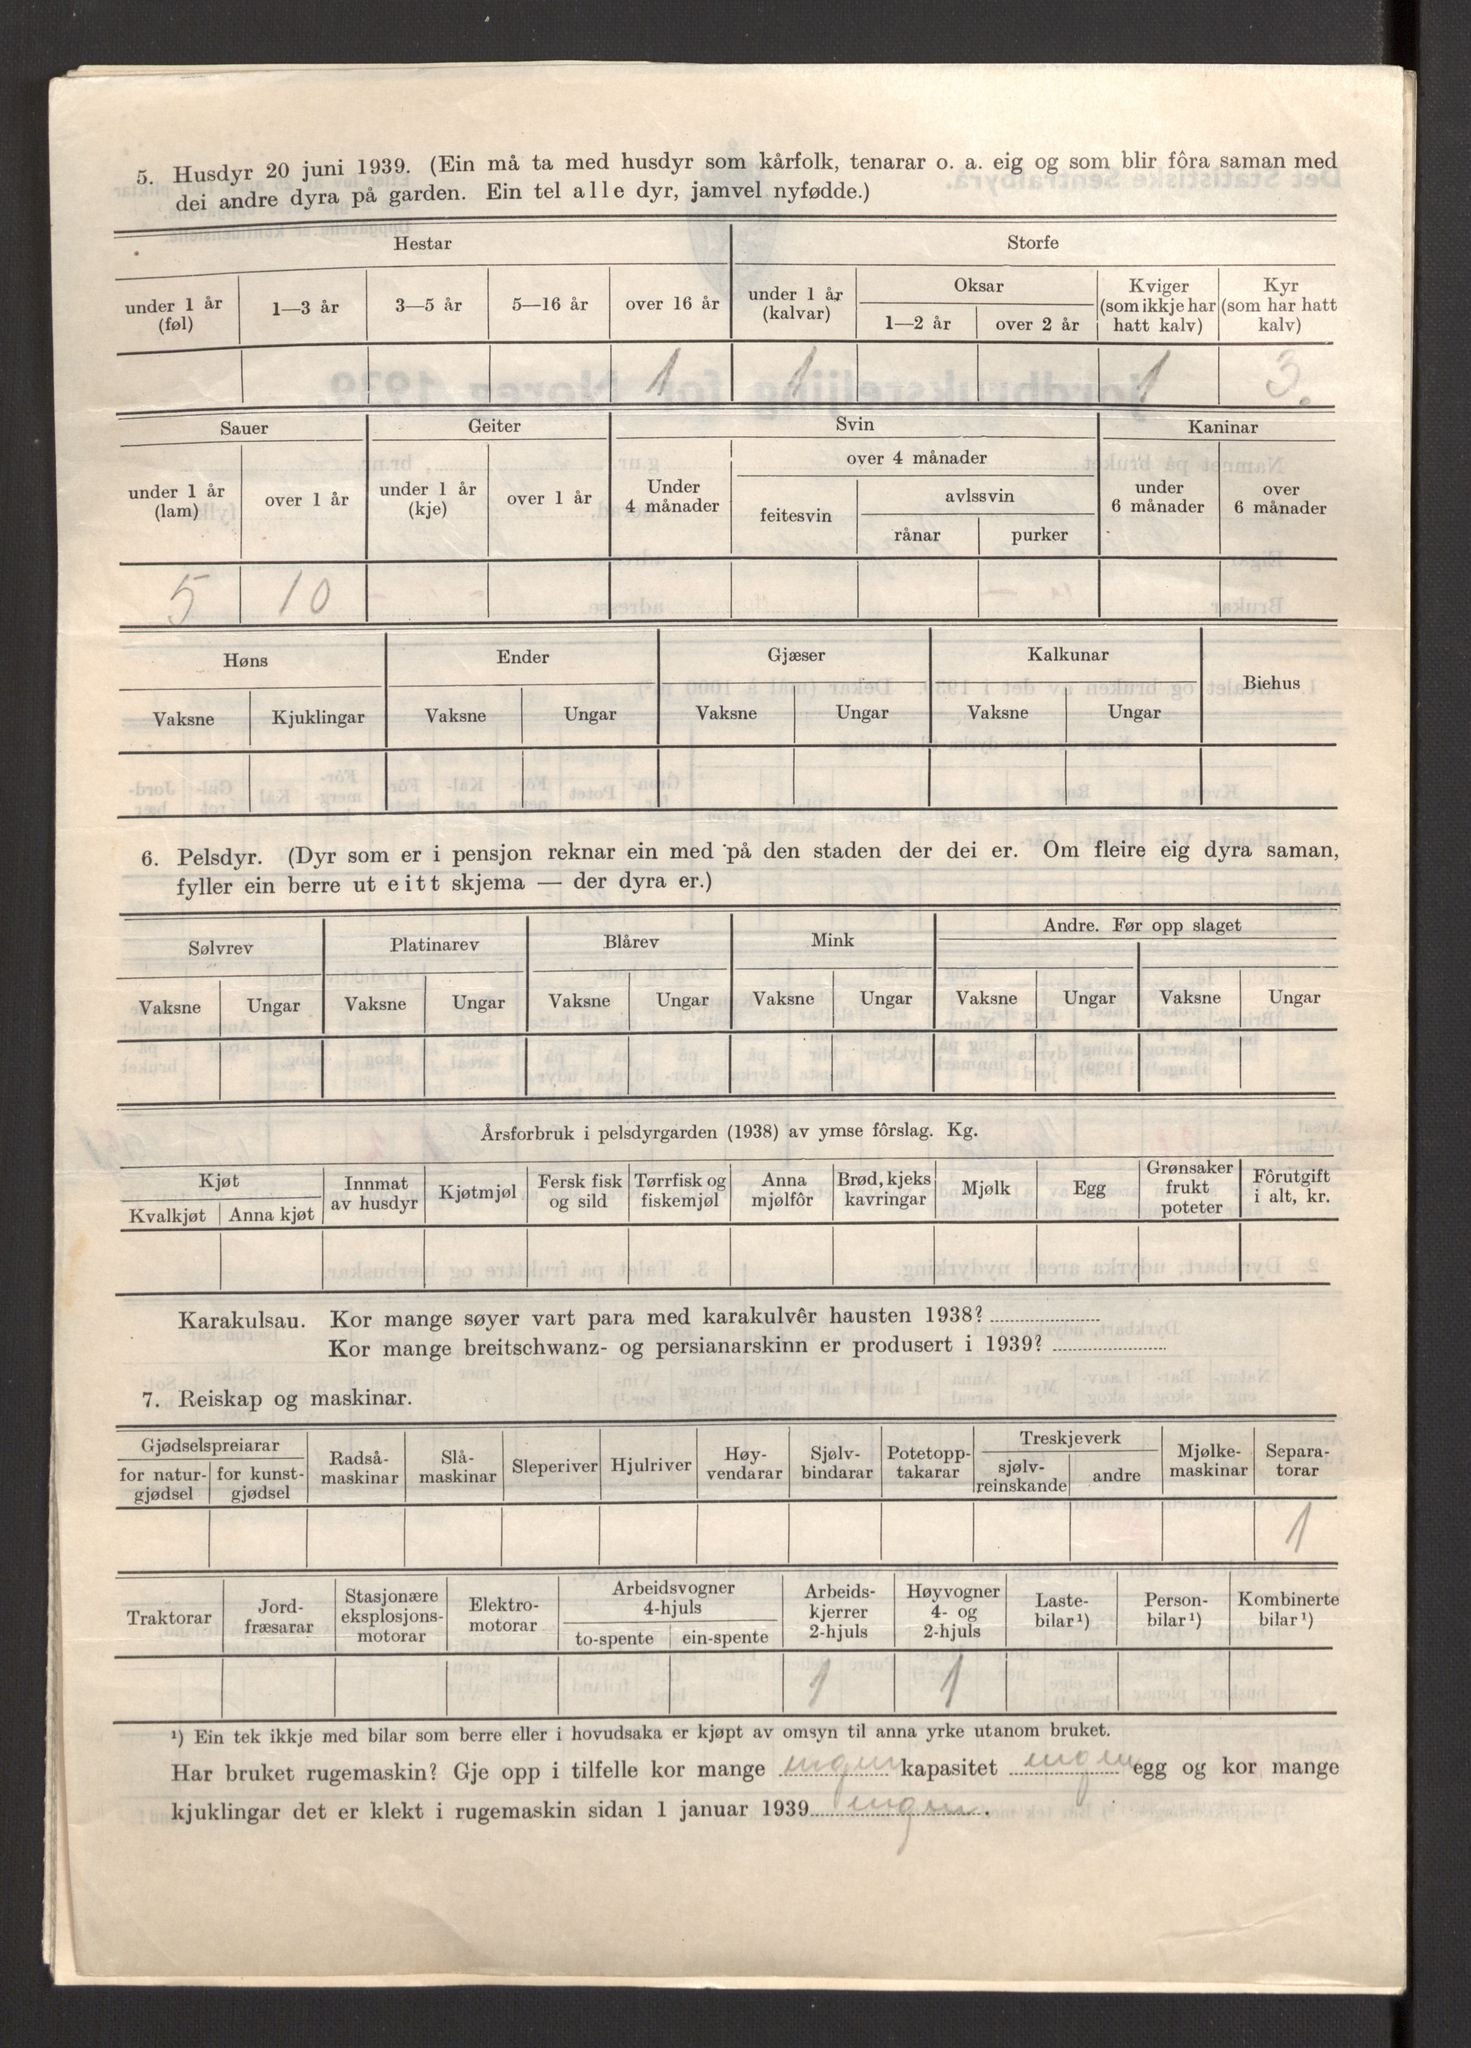 5. Husdyr 20 juni 1939. (Ein må ta med husdyr som kårfolk, tenarar o. a. eig og som blir fôra saman med
dei andre dyra på garden. Ein tel alle dyr, jamvel nyfødde.)
Hestar Storfe
under 1 år (føl) 1—3 år 3—5 år 5—16 år over 16 år under 1 år (kalvar) Oksar 1—2 år over 2 år Kviger (som ikkje har hatt kalv) Kyr (som har hatt kalv)
1 1 1 3.
Sauer Geiter Svin Kaninar
over 4 månader
under 1 år (lam) over 1 år under 1 år (kje) over 1 år Under 4 månader feitesvin avlssvin rånar purker under 6 månader over 6 månader
5 10
Høns Ender Gjæser Kalkunar Biehus
Vaksne Kjuklingar Vaksne Ungar Vaksne Ungar Vaksne Ungar
6. Pelsdyr. (Dyr som er i pensjon reknar ein med på den staden der dei er. Om fleire eig dyra saman,
fyller ein berre ut eitt skjema — der dyra er.)
Sølvrev Platinarev Blårev Mink Andre. Før opp slaget
Vaksne Ungar Vaksne Ungar Vaksne Ungar Vaksne Ungar Vaksne Ungar Vaksne Ungar
Årsforbruk i pelsdyrgarden (1938) av ymse fôrslag. Kg.
Kjøt Innmat av husdyr Kjøtmjøl Fersk fisk og sild Tørrfisk og fiskemjøl Anna mjølfôr Brød, kjeks kavringar Mjølk Egg Grønsaker frukt poteter Fôrutgift i alt, kr.
Kvalkjøt Anna kjøt
Karakulsau. Kor mange søyer vart para med karakulvêr hausten 1938?
Kor mange breitschwanz- og persianarskinn er produsert i 1939?
7. Reiskap og maskinar.
Gjødselspreiarar Radså-maskinar Slå-maskinar Sleperiver Hjulriver Høy-vendarar Sjølv-bindarar Potetopp-takarar Treskjeverk Mjølke-maskinar Separa-torar
for natur-gjødsel for kunst-gjødsel sjølv-reinskande andre
1
Traktorar Jord-fræsarar Stasjonære eksplosjons-motorar Elektro-motorar Arbeidsvogner 4-hjuls Arbeids-kjerrer 2-hjuls Høyvogner 4- og 2-hjuls Laste-bilar¹) Person-bilar¹) Kombinerte bilar¹)
to-spente ein-spente
1 1
¹) Ein tek ikkje med bilar som berre eller i hovudsaka er kjøpt av omsyn til anna yrke utanom bruket.
Har bruket rugemaskin? Gje opp i tilfelle kor mange ingen kapasitet ingen egg og kor mange
kjuklingar det er klekt i rugemaskin sidan 1 januar 1939 ingen.